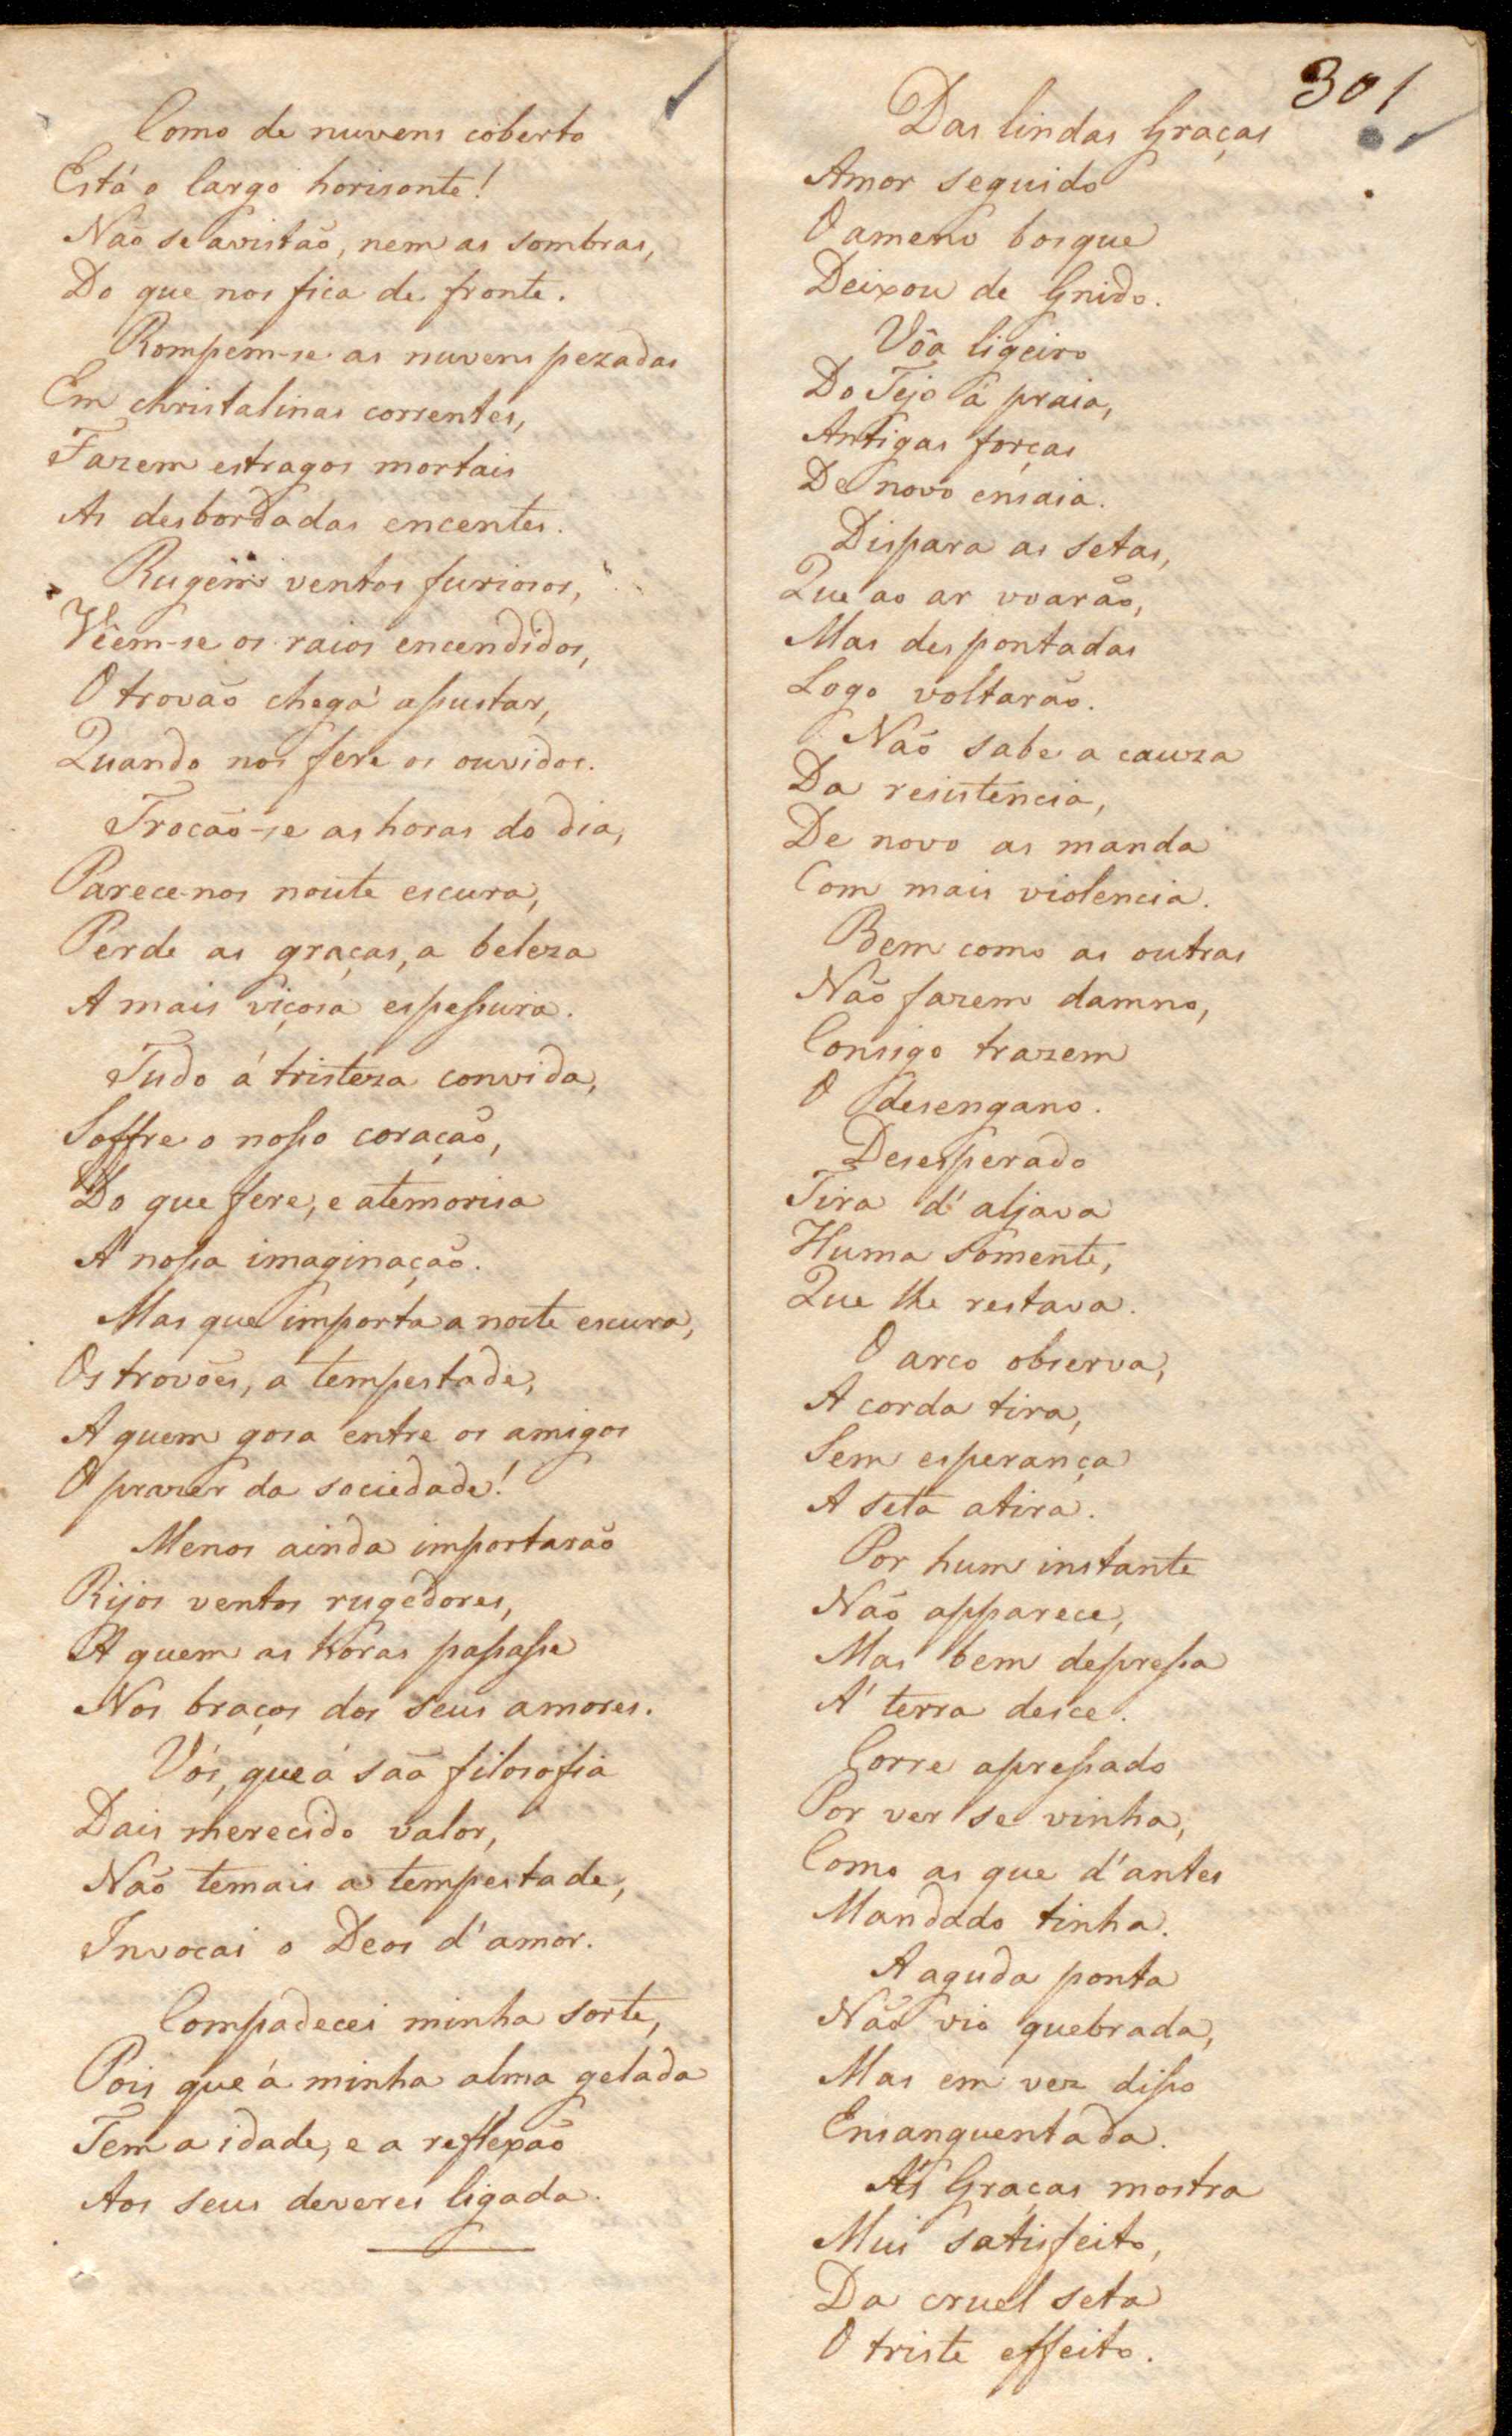 Como de nuvens coberto
Está o largo horisonte!
Não se avistão, nem as sombras,
Do que nos fica de fronte.
Rompem-se as nuvens pezadas
Em christalinas correntes,
Fazem estragos mortais
As desbordadas encentes.
Rugem ventos furiosos,
Vêem-se os raios encendidos,
O trovão chega' assustar,
Quando nos fere os ouvidos.
Trocão-se as horas do dia,
Parece-nos noute escura,
Perde as graças, a beleza
A mais viçosa espessura.
Tudo á tristeza convida,
Soffre o nosso coração,
Do que fere, e atemorisa
A' nossa imaginação.
Mas que importa a noite escura,
Os trovões, a tempestade,
A quem gosa entre os amigos
O prazer da sociedade!
Menos ainda importarão
Rijos ventos rugedores,
A quem as horas passasse
Nos braços dos seus amores.
Vós, que á sãa filosofia
Dais merecido valor,
Não temais a tempestade,
Invocai o Deos d'amor.
Compadecei minha sorte,
Pois que á minha alma gelada
Tem a idade, e a reflexão
Aos seus deveres ligada.
301
Das lindas Graças
Amor seguido
O ameno bosque
Deixou de Gnido.
Vôa ligeiro
Do Tejo á praia,
Antigas forças
De novo ensaia.
Dispara as setas,
Que ao ar voarão,
Mas despontadas
Logo voltarão.
Não sabe a cauza
Da resistencia,
De novo as manda
Com mais violencia.
Bem como as outras
Não fazem damno,
Consigo trazem
O desengano.
Desesperado
Tira d'aljava
Huma somente,
Que lhe restava.
O arco observa,
A corda tira,
Sem esperança
A seta atira.
Por hum instante
Não apparece,
Mas bem depressa
A' terra desce.
Corre apressado
Por ver se vinha,
Como as que d'antes
Mandado tinha.
A aguda ponta
Não vio quebrada,
Mas em vez disso
Ensanguentada.
A's Graças mostra
Mui satisfeito,
Da cruel seta
O triste effeito.